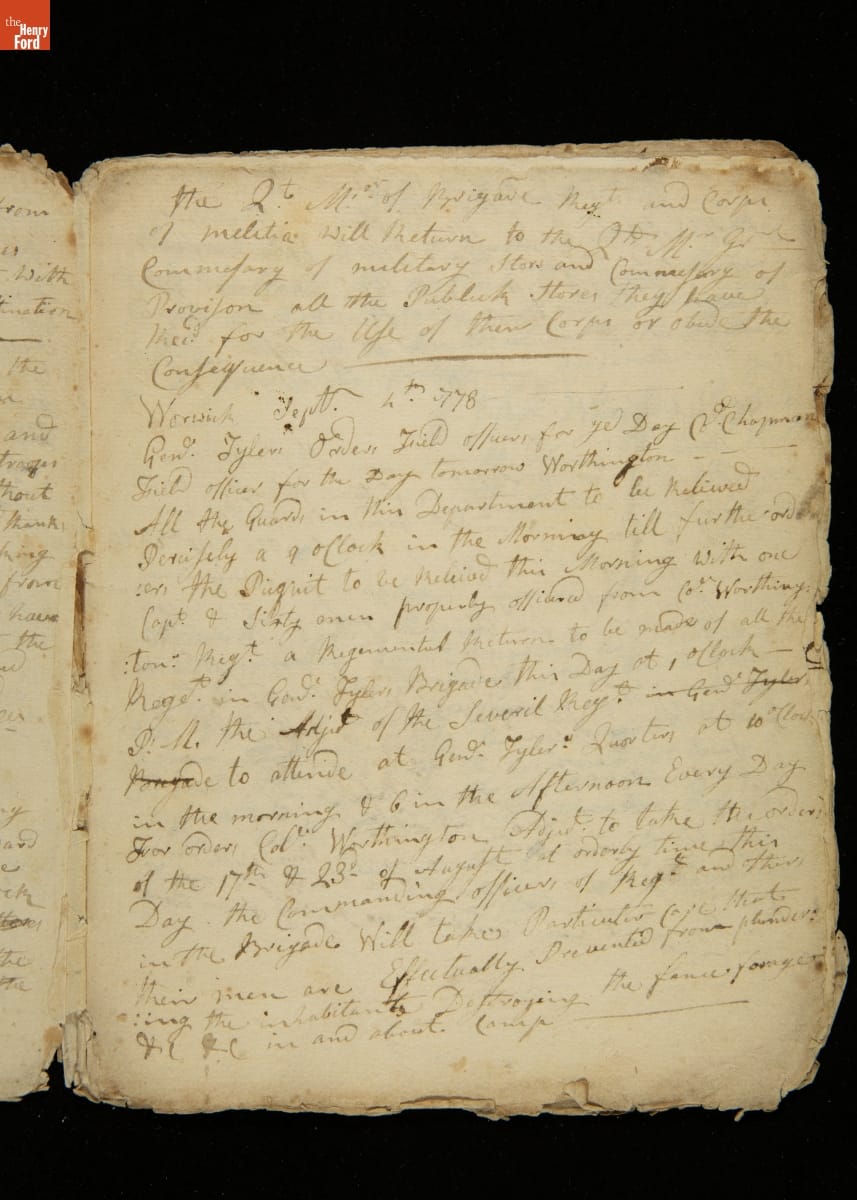 the
Henry
Ford
from
with
tination
the
and
troops
thout
thank
king
from
have
the
ard
the
the
the Qt. Mrs. of Brigade Regts and Corps
of melitia will Return to the Qtr. Mr. Grl
Commesary of military Stors and Commesary of
Provison all the Publick Stores they have
Recd for the Use of their Corps or abide the
Consequence
Worwick Sept. 4th 1778
Genl. Tylers Orders Field officers for ye Day Col. Chapman
Field officer for the Day tomorrow Worthington - - -
All the Guards in this Department to be Relieved
Percisely a 9 oClock in the Morning till further ord
:ers the Piquit to be Relieved this Morning with one
Capt. & Sixty men properly officered from Col. Worthing:
:tons Regt. a Regemental Return to be made of all the
Regt. in Genl. Tylers Brigade this Day at 1 oClock —
P. M. the Adjts of the Severil Regt. in Genl Tyler
Brigade to attende at Genl. Tylers Quorters at 10 oClock
in the morning & 6 in the Afternoon Every Day
For orders Col. Worthington Adjt. to take the orders
of the 17th & 23d of August at orderly time this
Day. the Commanding officers of Regts and others
in the Brigade Will take Particuler Care that
their men are Effectually Prevented from plunder:
:ing the inhabitants Destroying the fence forage
&C &C in and about Camp